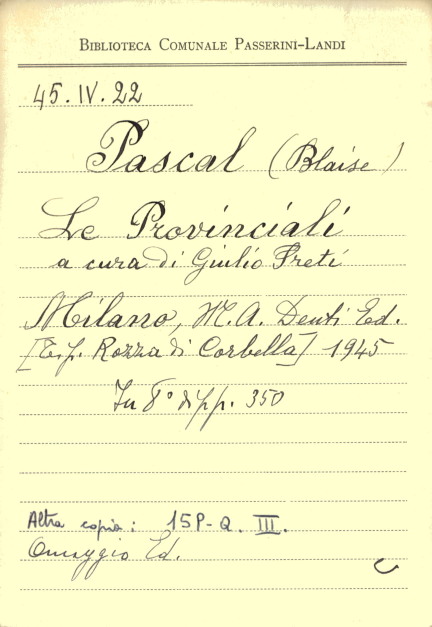 BIBLIOTECA COMUNALE PASSERINI-LANDI
45.IV.22
Pascal (Blaise)
Le Provinciali
a cura di Giulio Preti
Milano, M.A. Denti Ed.
[T.p. Rozza di Corbella] 1945
In 8° di pp. 350
Altra copia: 15P-Q. III.
Omaggio Ed.
C